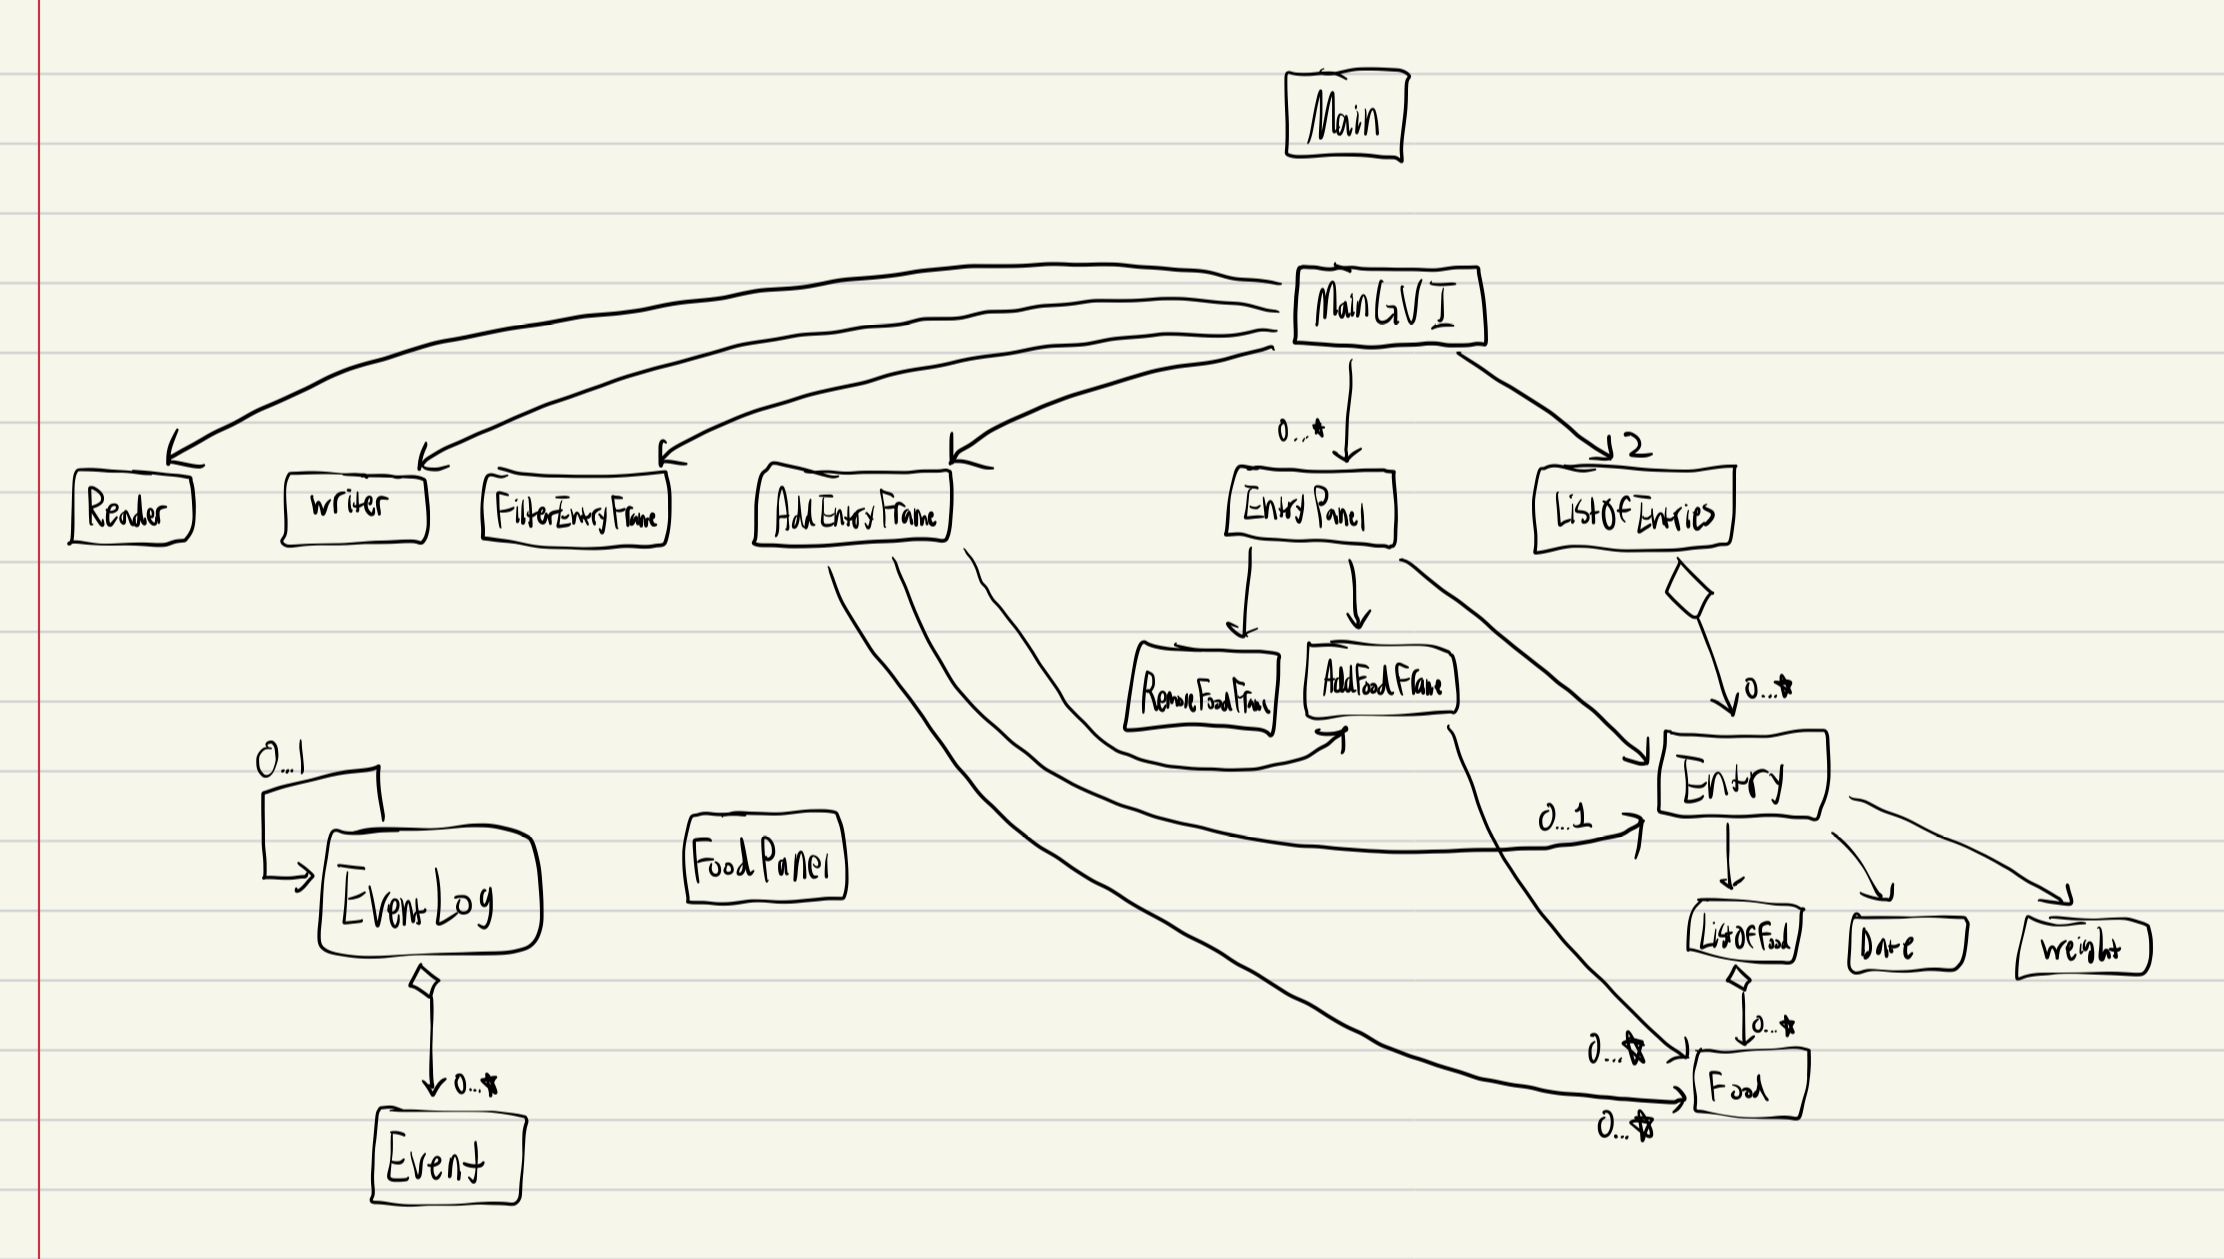 Main
MainGUI
0...*
2
Reader
writer
FilterEntryFrame
AddEntryFrame
EntryPanel
ListOfEntries
RemoveFoodFrame
AddFoodFrame
0...*
0...1
EventLog
FoodPanel
0...1
Entry
ListOfFood
Date
Weight
0...*
0...*
Food
0...*
0...*
Event